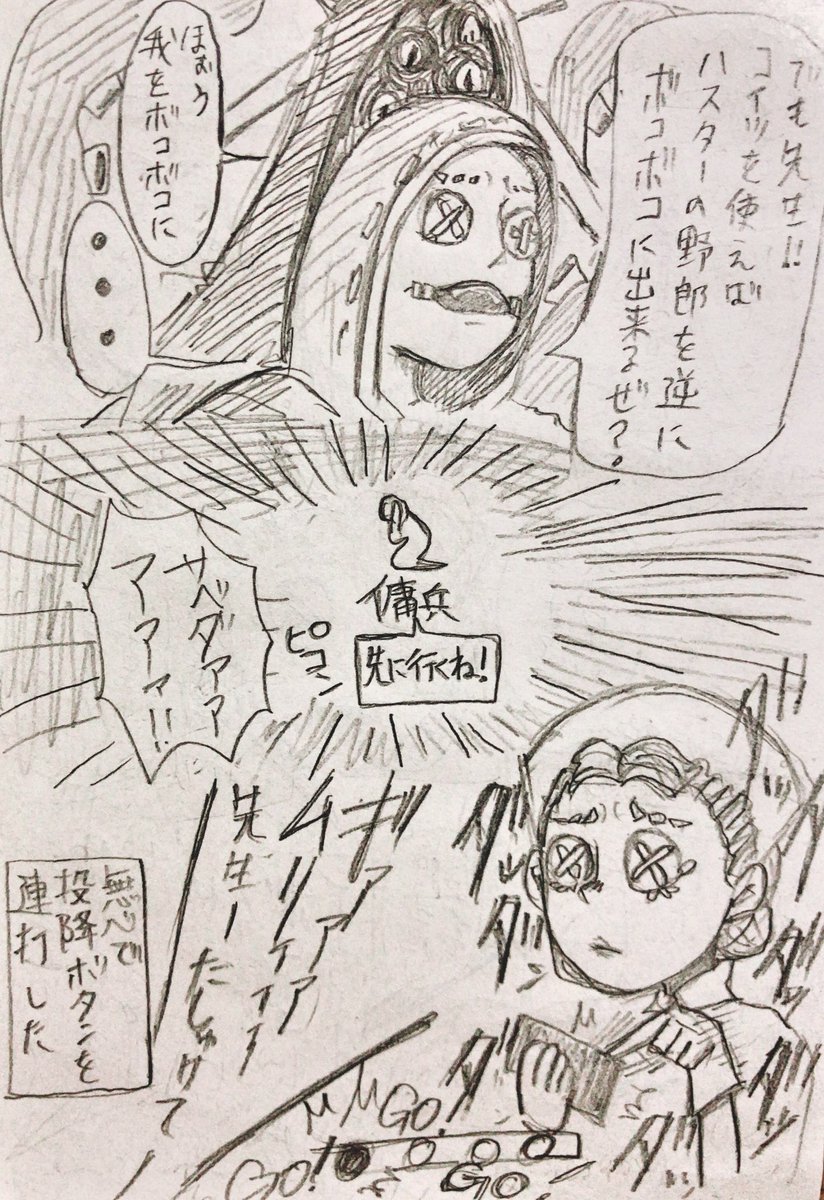 でも先生!!
コイツを使えば
ハスターの野郎を逆に
ボコボコに出来るぜ?。
ほむう
我をボコボコに
傭兵
先に行くね!
ピコン
サベダァァ
アァァァ!!
ギァァァァ
ムリィィィィ
先生ーたしゅけて
ダダダダダ
無心で
投降ボタンを
連打した
GO!
GO!
GO